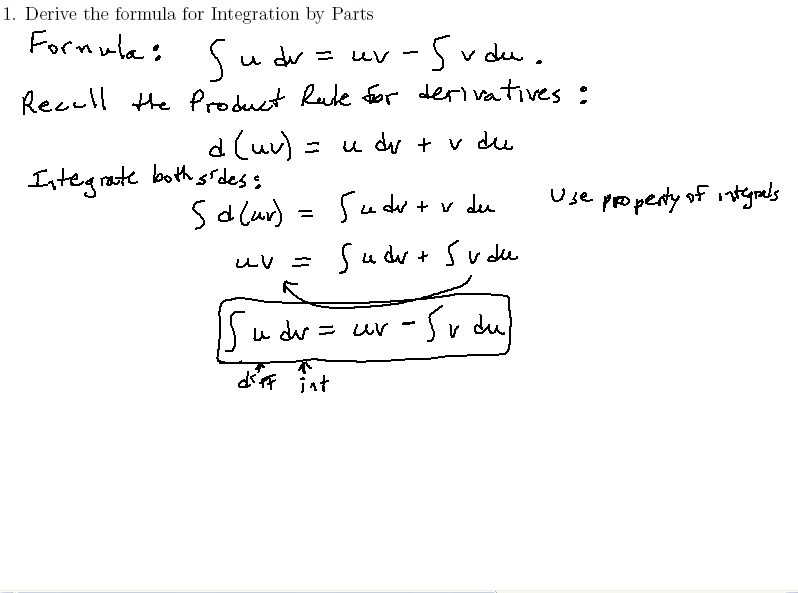 1. Derive the formula for Integration by Parts
Formula: ∫ u dv = uv - ∫ v du.
Recall the Product Rule for derivatives:
d(uv) = u dv + v du
Integrate both sides:
∫ d(uv) = ∫ u dv + v du Use property of integrals
uv = ∫ u dv + ∫ v du
∫ u dv = uv - ∫ v du
diff int